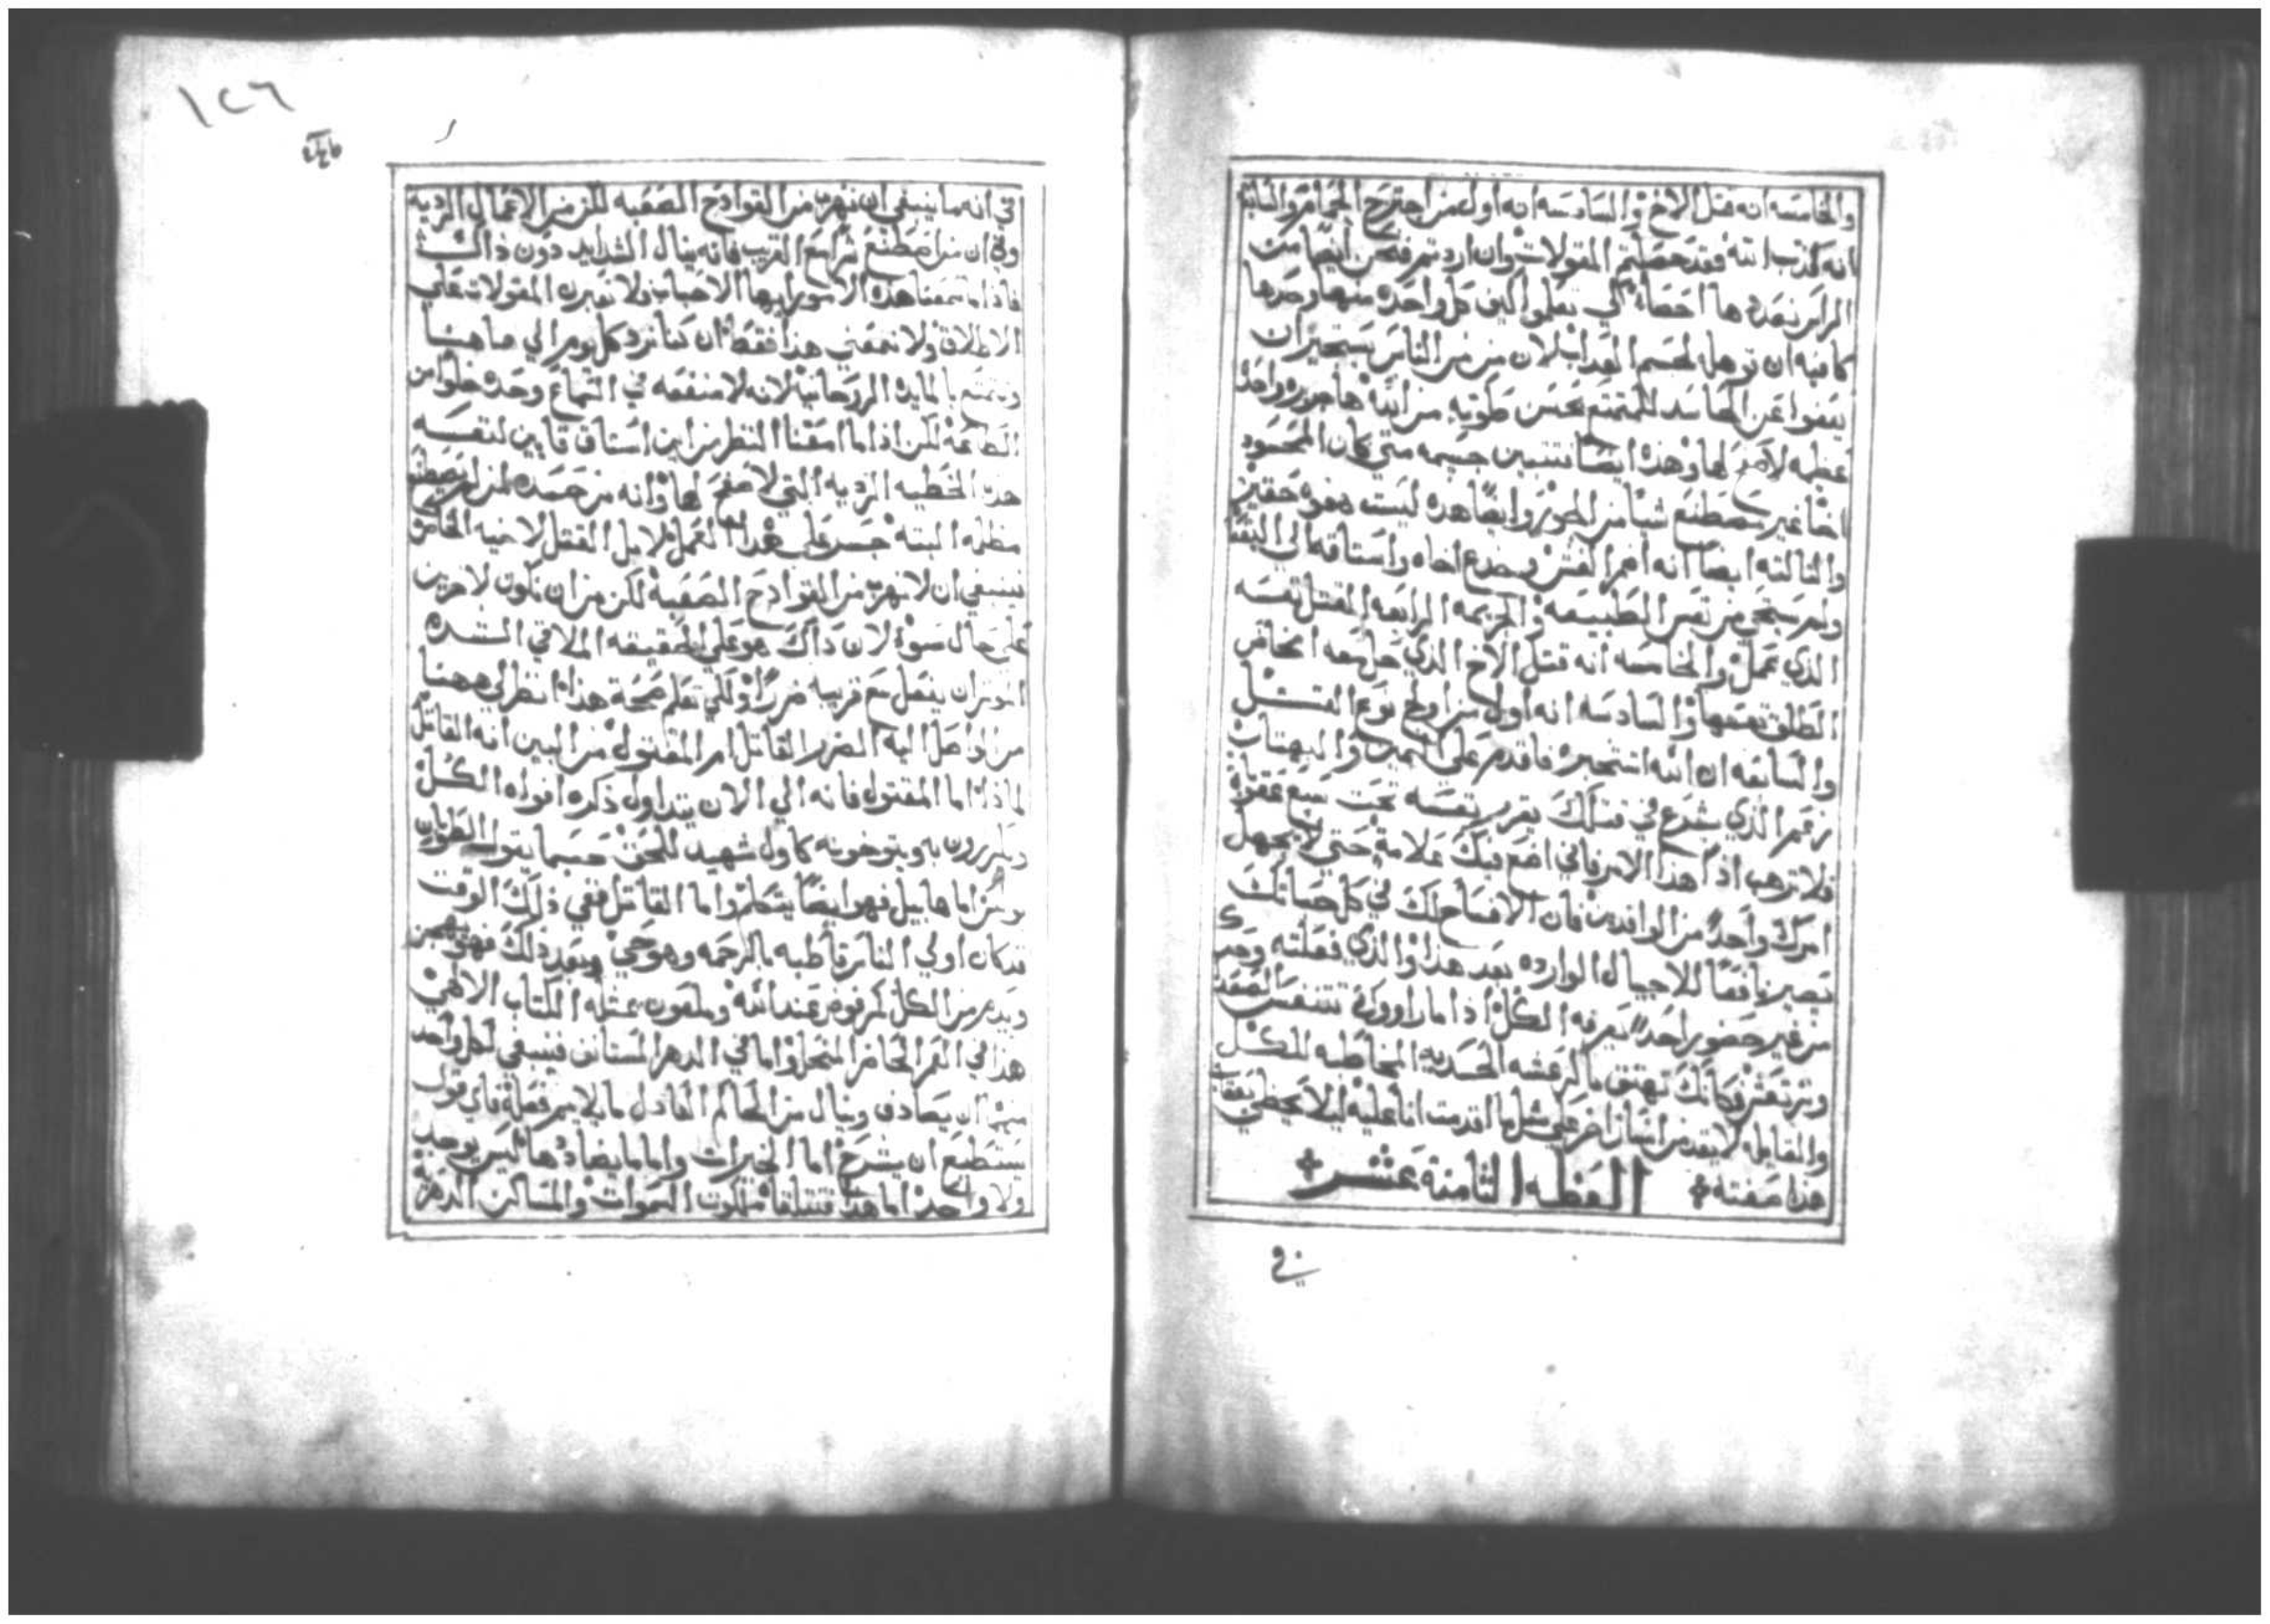 والخامسه انه قتل الاخ والسادسه انه اول من اجترح الجرايم والسابعه
انه كذب الله فقد حصلتم المقولات وان اردتم فنحن ايضًا من
الراس نعددها احصاء لكي تعلموا كيف كل واحده منها وحدها
كافيه ان ترهله لحسم العداب لان من من الناس يستجيز ان
يعفوا عن الحاسد للمتمتع بحسن طويه من الله ها جريره واحده
عظيمه لا صفح لها وهذه ايضًا تتبين جسيمه متي كان المحسود
اخًا غير مصطنع شيًا من الجور وايضًا هذه ليست هفوه حقيره
والثالثه ايضًا انه اضمر الغش وخدع اخاه واستاقه الي البقعا
ولم يستحي من نفس الطبيعه والجريمه الرابعه القتل نفسه
الذي عمل والخامسه انه قتل الاخ الذي حل معه المخاض
الطلق بعينها والسادسه انه اول من اولج نوع القتل
والسابعه ان الله استخبره فاقدم على المين والبهتان
زعم الذي يشرع في قتلك يقرر نفسه تحت سبع عقوبات
فلا ترهب اذًا هذا الامر فاني اضع فيك علامة حتى لا يجهل
امرك واحدٌ من الوافدين فان الافتضاح لك في كل حياتك
يصير نافعًا للاجيال الوارده بعد هذا والذي فعلته وحدك
من غير حضور احدٍ يعرفه الكل اذا ما راووك تتنفس الصعدا
وترتعش فكانك تهتف بالرعشه الجسديه المخاطبه للكل
والقايله لا يقدمن انسان اخر علي مثل ما اقدمت انا عليه ليلا يحظي بعقاب
هذا صفته ٭ العظه الثامنة عشر ٭
في
١٢٦
في انه ما ينبغي ان نهرب من القوادح الصعبه لكن من الاعمال الرديه
وفي ان من اصطنع شرًا مع القريب فانه ينال الشدايد دون ذاك
فاذا ما سمعنا هذه الامور ايها الاحباب فلا نعبرن المقولات علي
الاطلاق ولا نمعني هذا فقط ان كنا نرد كل يوم الي ما هنا
ونتمتع بالمايده الروحانيه لانه لا منفعه في السماع وحده خلوًا من
الطاعة لكن اذا ما امعنا النظر من اين استاق قايين لنفسه
هذه الخطيه الرديه التي لا صفح لها وانه من حسده لمن لم يصطنع
مظلمه البته جسر على هذا العمل لا بل القتل لاخيه الخاص
فينبغي ان لا نهرب من القوادح الصعبة لكن من ان نكون لاخرين
على حال سوء لان ذاك هو على الحقيقه الملاقي الشده
الموثر ان يفعل مع قريبه ضررًا ولكي تعلم صحة هذا انظر لي ههنا
من اوصل اليه الضرر القاتل ام المقتول من البين انه القاتل
لماذا اما المقتول فانه الي الان يتداول ذكره افواه الكل
ويكررون به ويتوخونه كاول شهيد للحق حسبما يقول الطوبان
بولس اما هابيل فهو ايضًا يتكلم واما القاتل ففي ذلك الوقت
قد كان اولي الناس قاطبه بالرحمه وهو حي وبعد ذلك فهو يهجن
ويذم من الكل كمرفوض عند الله وملعون يمثله الكتاب الالهي
هذا في العمر الحاضر المنحل واما في الدهر المستانف فينبغي لكل واحد
منهما ان يصادف وينال من الحاكم العادل ما يلايم فعله فاي قول
يستطيع ان يشرح اما الخيرات واما ما يضادها ليس يوجد
ولا واحد اما هذا فتتلقاه ملكوت السموات والمساكن الدهرية